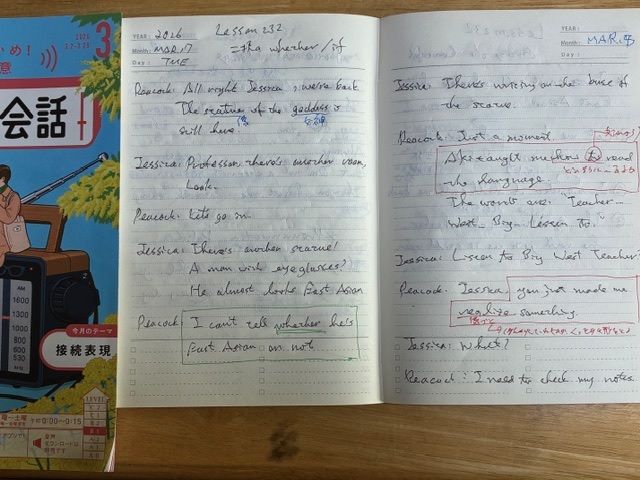 いめ!
意
2026
3
会話
AM
1600
1300
1000
810
630
530
今月のテーマ
接続表現
LEVEL
C2
C1
B2
B1
A2
A1
午後0:00～0:15
音声
ダウンロードは
YEAR: 2026 Lesson 232
Month: MAR, 17 =tha wherher / if
Day: TUE
Peacock: All right Jessica, we're back
The scatue of the goddess is
像 女神
still here.
Jessica: Professor, there's another room,
Look.
Peacock: Let's go in.
Jessica: There's another scatue!
A man with eyeglasses?
He almost looks East Asian
Peacock: I can't tell wherher he's
East Asian or not
YEAR:
Month: MAR, 17
Day:
Jessica: There's writing on the base of
the scatue.
Peacock: Just a moment
Aki taught me how to read
the language.
The words are: "Teacher...
West... Big... Lescen To."
Jessica: Liscen To Big West Teacher?
Peacock: Jessica, you just made me
realize something.
Jessica: What?
Peacock: I need to check my notes.